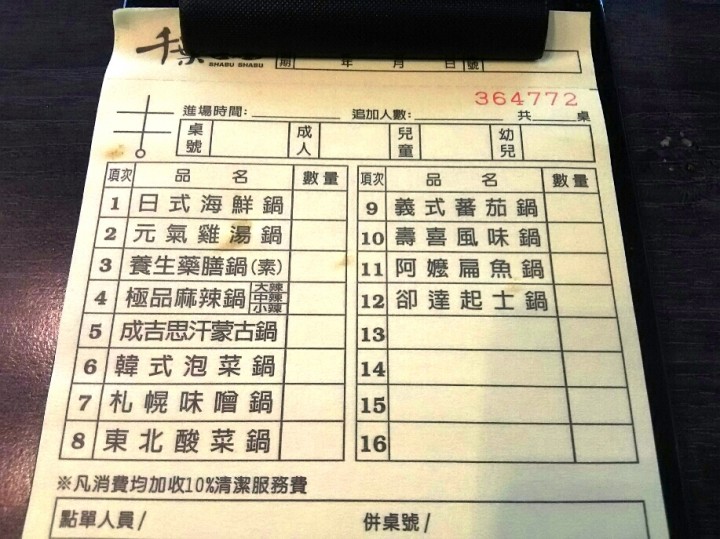 千葉
SHABU SHABU
期 年 月 日 號
364772
進場時間: 追加人數: 共 桌
桌號 成人 兒童 幼兒
項次 品名 數量 項次 品名 數量
1 日式海鮮鍋 9 義式蕃茄鍋
2 元氣雞湯鍋 10 壽喜風味鍋
3 養生藥膳鍋(素) 11 阿嬤扁魚鍋
4 極品麻辣鍋 大辣 中辣 小辣 12 卻達起士鍋
5 成吉思汗蒙古鍋 13
6 韓式泡菜鍋 14
7 札幌味噌鍋 15
8 東北酸菜鍋 16
※凡消費均加收10%清潔服務費
點單人員/ 併桌號/